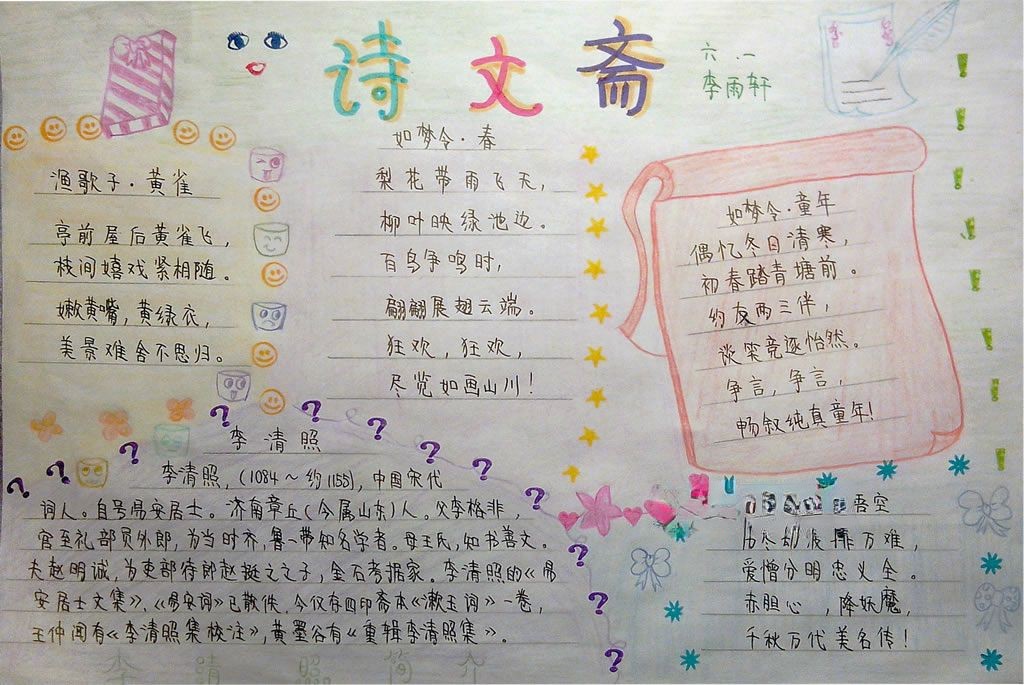 诗文斋
六.一
李雨轩
渔歌子·黄雀
亭前屋后黄雀飞，
枝间嬉戏紧相随。
嫩黄嘴，黄绿衣，
美景难舍不思归。
如梦令·春
梨花带雨飞天，
柳叶映绿池边。
百鸟争鸣时，
翩翩展翅云端。
狂欢，狂欢，
尽览如画山川！
如梦令·童年
偶忆冬日清寒，
初春踏青塘前。
约友两三伴，
谈笑竞逐怡然。
争言，争言，
畅叙纯真童年！
李清照
李清照，(1084～约1155)，中国宋代
词人。自号易安居士。济南章丘(今属山东)人。父李格非，
官至礼部员外郎，为当时齐、鲁一带知名学者。母王氏，知书善文。
夫赵明诚，为吏部侍郎赵挺之之子，金石考据家。李清照的《易
安居士文集》、《易安词》已散佚。今仅存四印斋本《漱玉词》一卷，
王仲闻有《李清照集校注》，黄墨谷有《重辑李清照集》。
李清照简介
悟空
万难，
爱憎分明忠义全。
赤胆心，降妖魔，
千秋万代美名传！